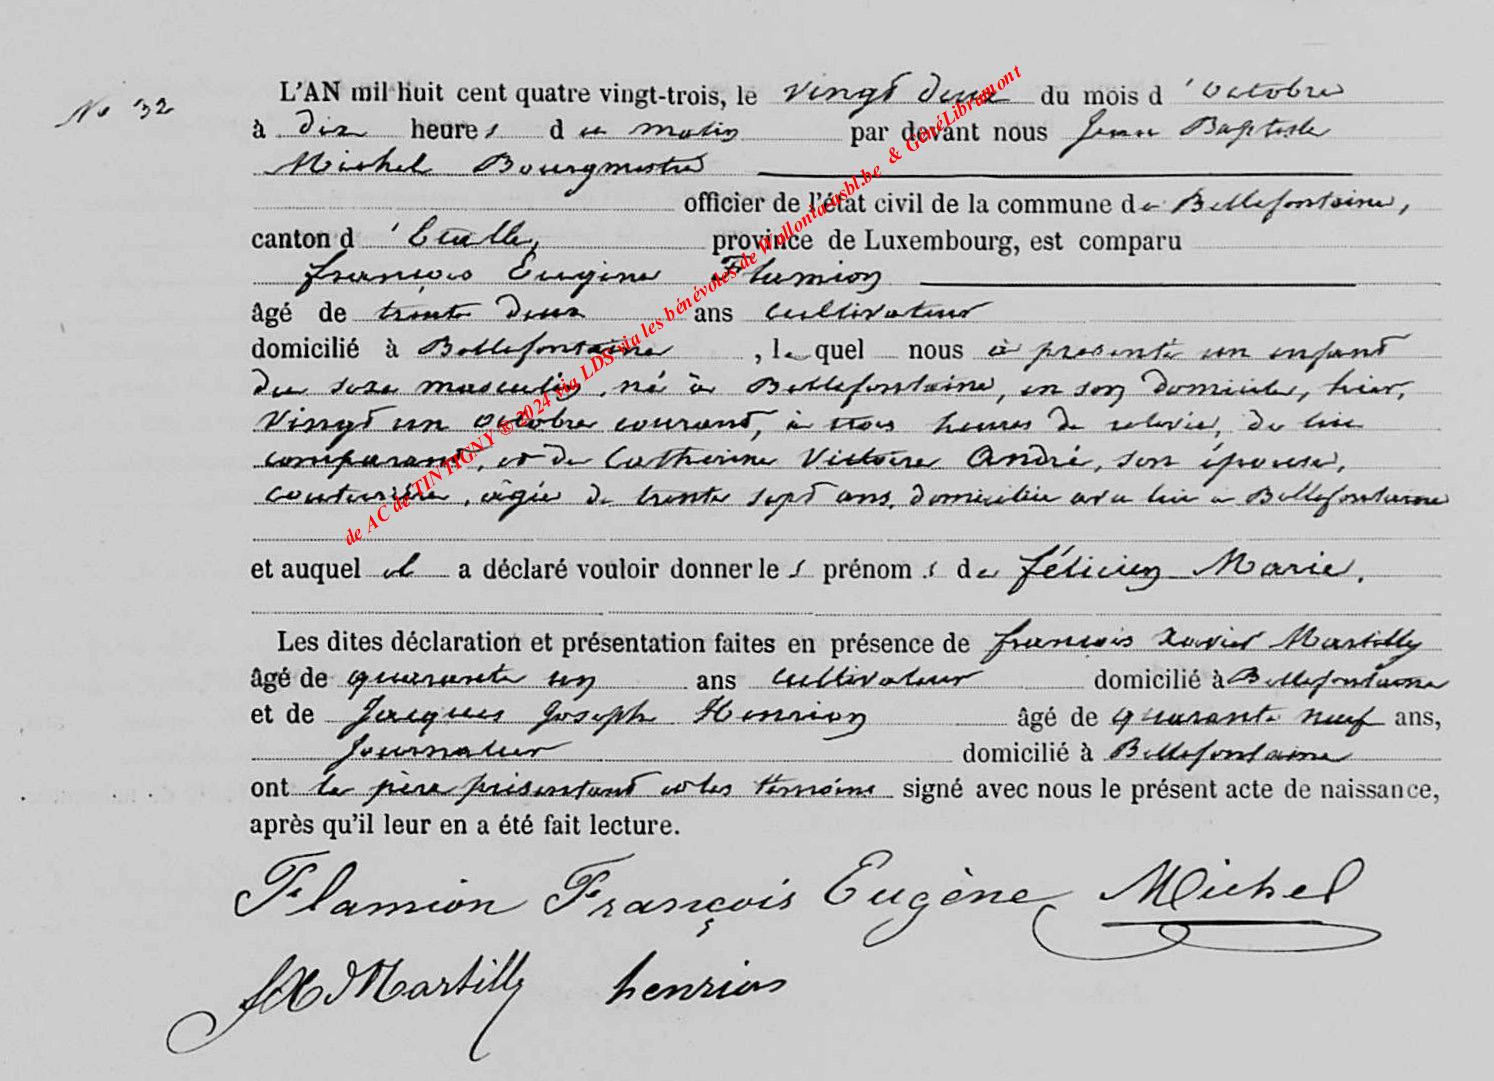 No 32
L'AN mil huit cent quatre vingt-trois, le vingt deux du mois d'octobre
à dix heures du matin par devant nous Jean Baptiste
Michel Bourgmestre
officier de l'état civil de la commune de Bellefontaine,
canton d'Etalle, province de Luxembourg, est comparu
françois Eugène Flamion
âgé de trente deux ans cultivateur
domicilié à Bellefontaine, lequel nous a présenté un enfant
du sexe masculin, né à Bellefontaine, en son domicile, hier,
vingt un octobre courant, à trois heures de relevée, de lui
comparant, et de Catherine Victoire André, son épouse,
couturière, âgée de trente sept ans, domiciliée avec lui à Bellefontaine
et auquel il a déclaré vouloir donner les prénoms de félicien Marie.
Les dites déclaration et présentation faites en présence de françois Xavier Martilly
âgé de quarante un ans cultivateur domicilié à Bellefontaine
et de Jacques Joseph Henrion âgé de quarante neuf ans,
Journalier domicilié à Bellefontaine
ont le père présentant et les témoins signé avec nous le présent acte de naissance,
après qu'il leur en a été fait lecture.
Flamion François Eugène Michel
fX Martilly henrion
de AC de TINTIGNY ®2024 via LDS via les bénévoles de Wallonia asbl.be & GénéLibramont